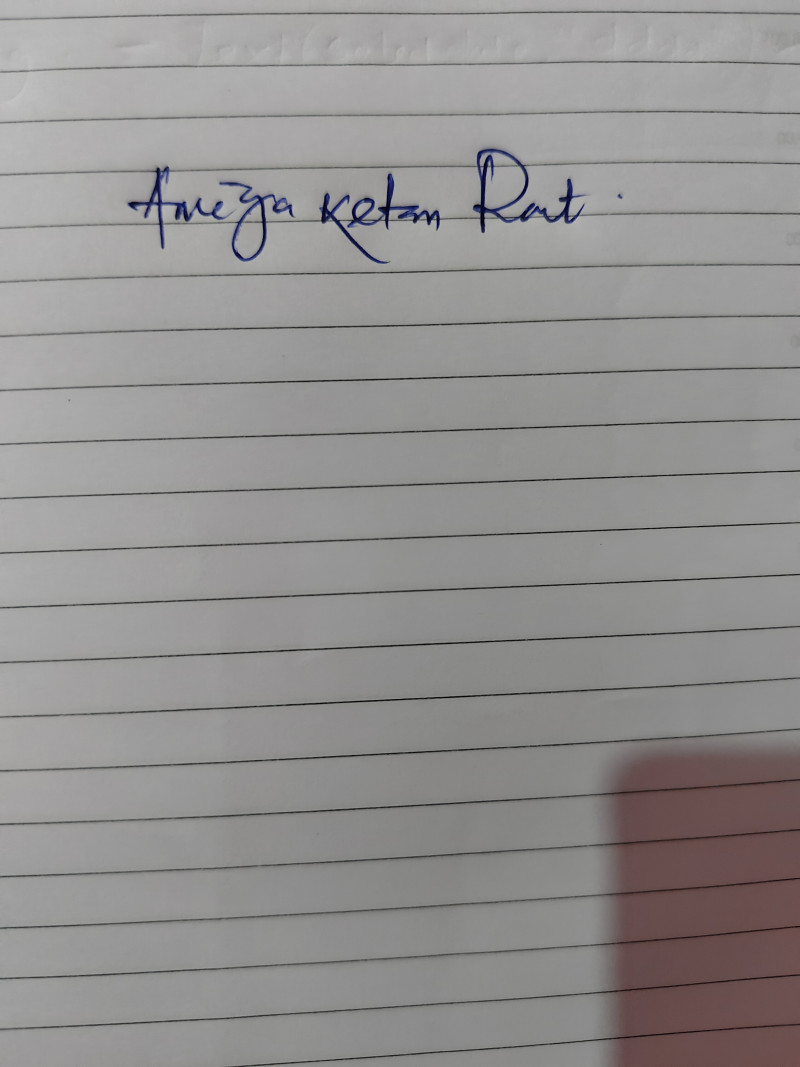 Ameya Ketan Raut.